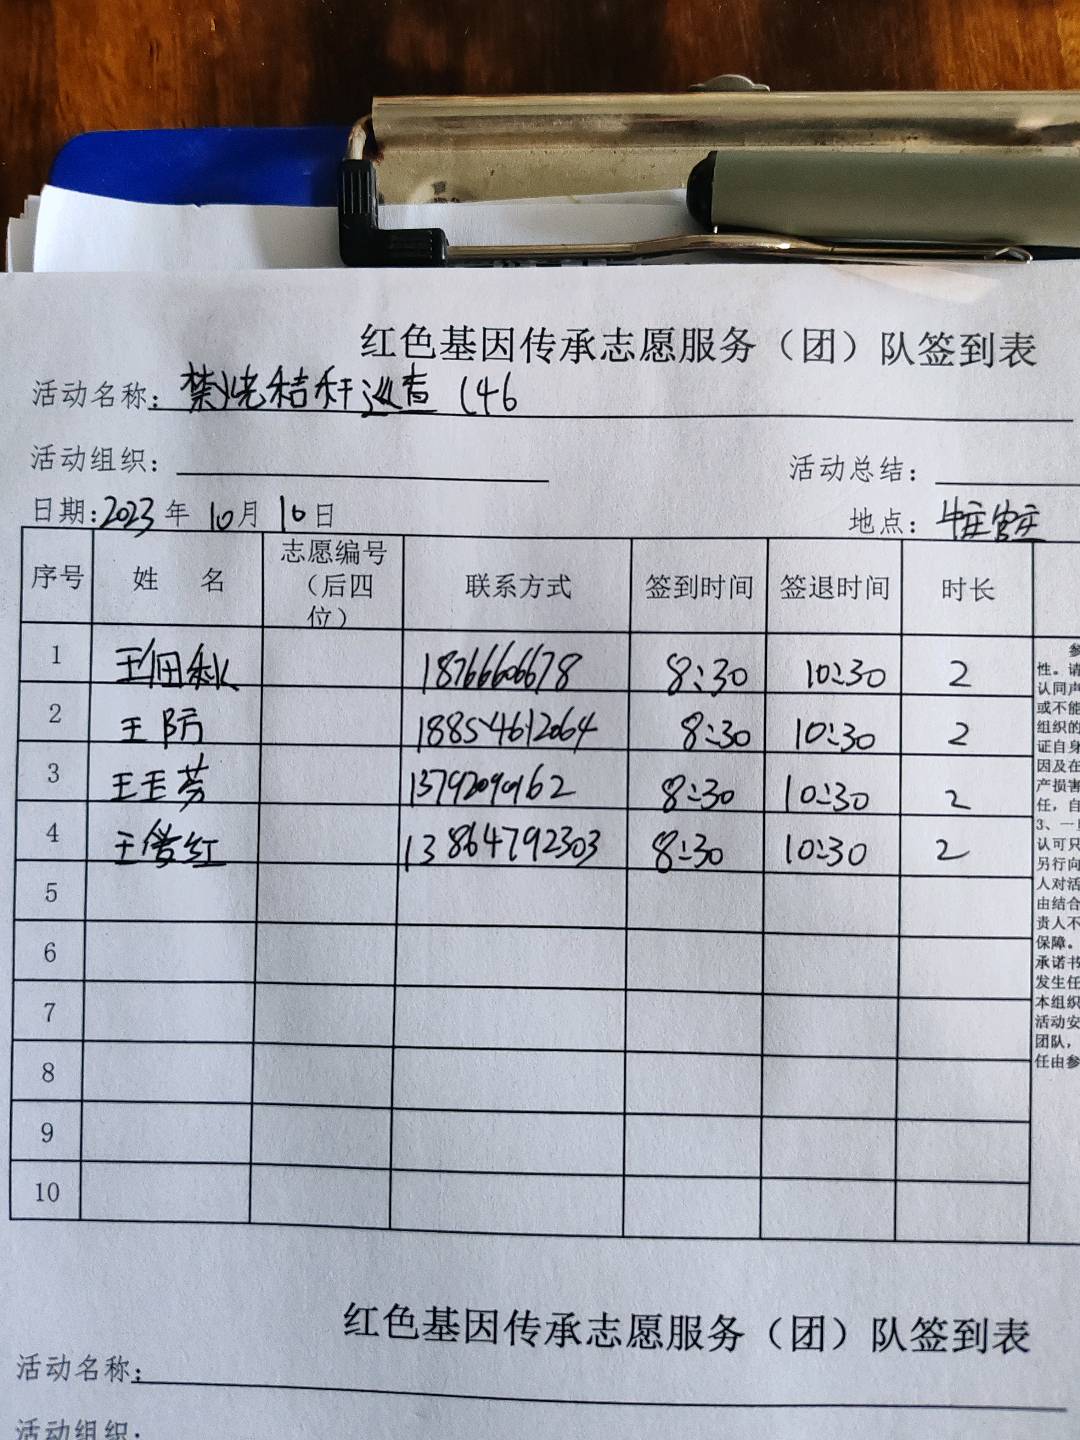 红色基因传承志愿服务（团）队签到表
活动名称：禁烧秸秆巡查 146
活动组织：
活动总结：
日期：2023年 10月 10日
地点：
序号 姓 名 志愿编号（后四位） 联系方式 签到时间 签退时间 时长
1 王佃秋 18766606678 8:30 10:30 2
2 王防 18854612064 8:30 10:30 2
3 王玉芳 13792090162 8:30 10:30 2
4 王 红 13864792303 8:30 10:30 2
5
6
7
8
9
10
参
性。请
认同声
或不能
组织的
证自身
因及在
产损害
任，自
3、一旦
认可只
另行向
人对活
由结合
责人不
保障。
承诺书
发生任
本组织
活动安
团队，
任由参
红色基因传承志愿服务（团）队签到表
活动名称：
活动组织：